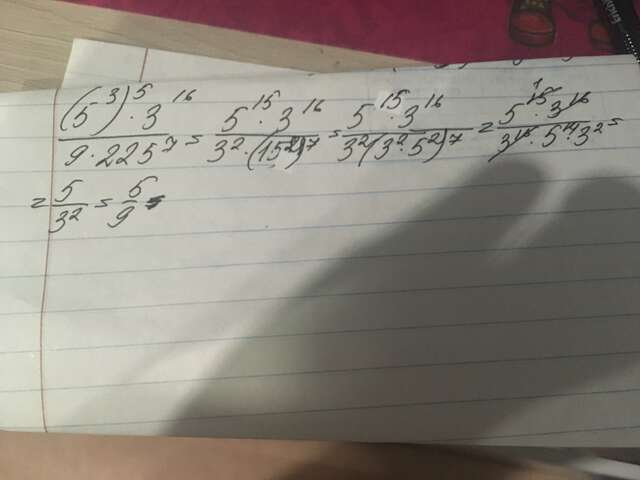 (5^3)^5 · 3^16 / 9 · 225^7 = 5^15 · 3^16 / 3^2 · (15^2)^7 = 5^15 · 3^16 / 3^2 (3^2 · 5^2)^7 = 5^15 · 3^16 / 3^16 · 5^14 · 3^2 =
= 5 / 3^2 = 5 / 9